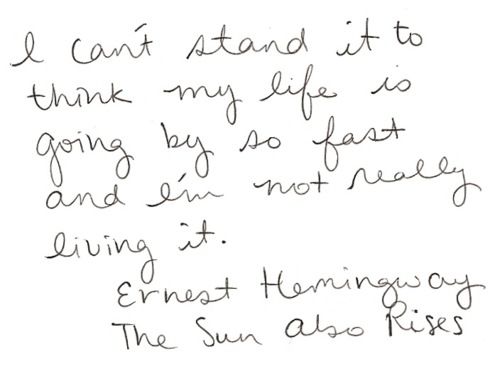 I can't stand it to
think my life is
going by so fast
and I'm not really
living it.
Ernest Hemingway
The Sun Also Rises